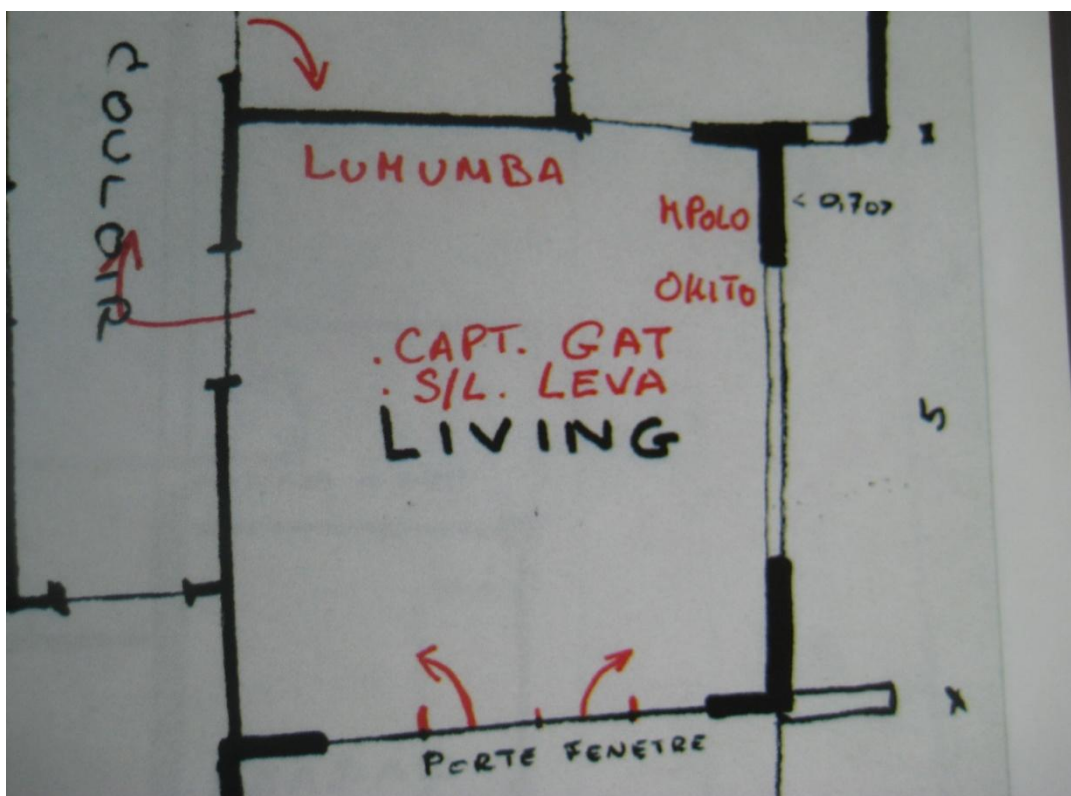 COULOIR
LUMUMBA
MPOLO
< 0,70>
OKITO
. CAPT. GAT
. S/L. LEVA
LIVING
5
PORTE FENETRE